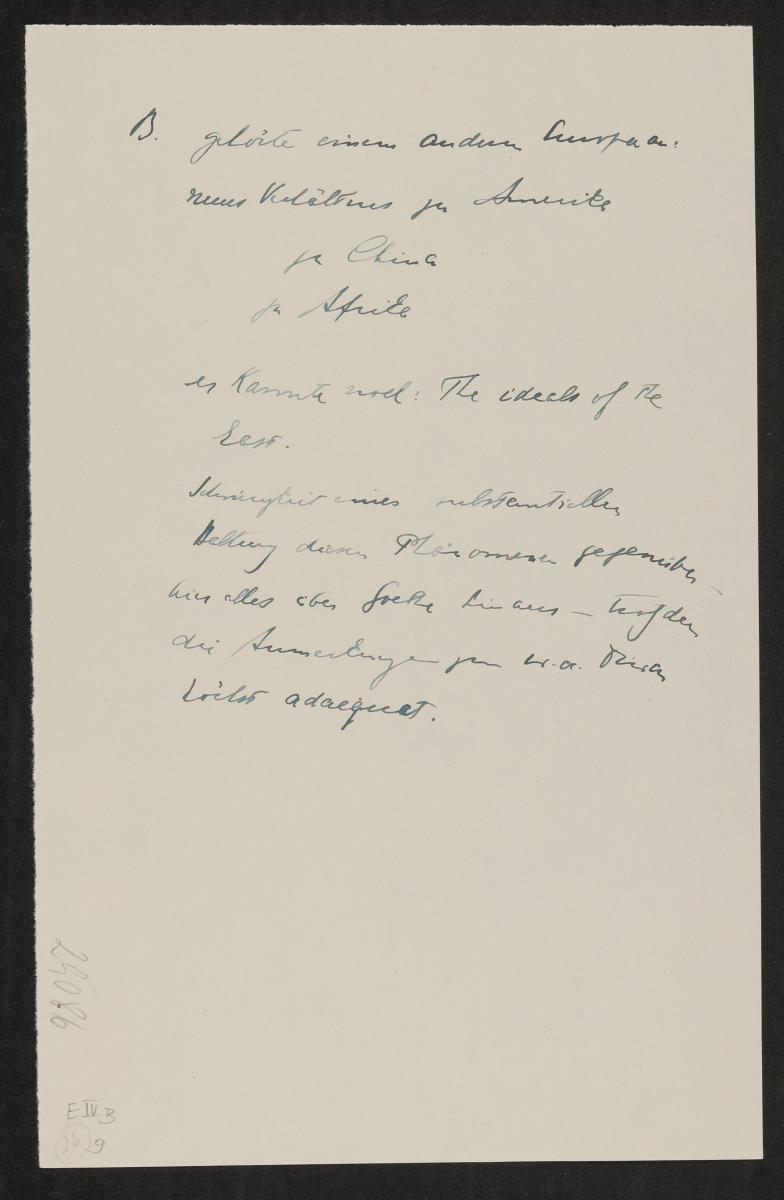 B. gehörte einem andern Europa an:
neues Verhältnis zu Amerika
zu China
zu Afrika
er kannte noch: The ideals of the
East.
Schwierigkeit einer substantiellen
Haltung diesen Phänomenen gegenüber –
hier alles über Goethe hinaus – trotzdem
die Anmerkungen zum w.ö. Divan
höchst adaequat.
29086
E IV B
26 9